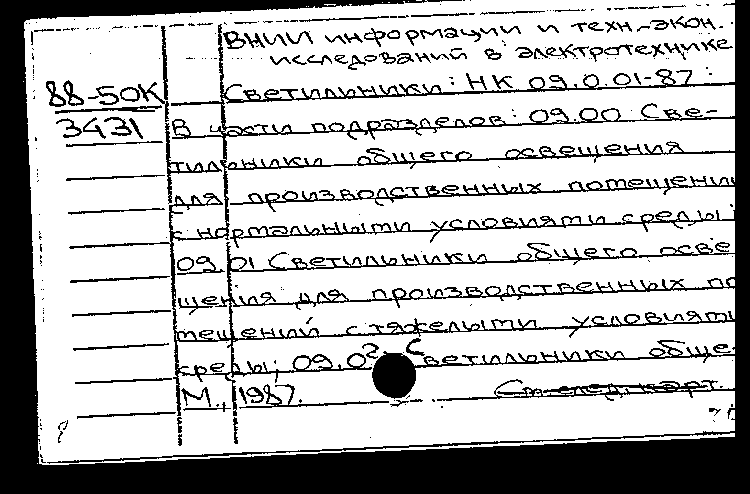 ВНИИ информации и техн.-экон.
исследований в электротехнике
88-50К
3431
Светильники: НК 09.0.01-87:
В части подразделов: 09.00 Све-
тильники общего освещения
для производственных помещени
с нормальными условиями среды;
09.01 Светильники общего осве
щения для производственных по
мещений с тяжелыми условиями
среды; 09.02 Светильники обще
М., 1987.
См. след. карт.